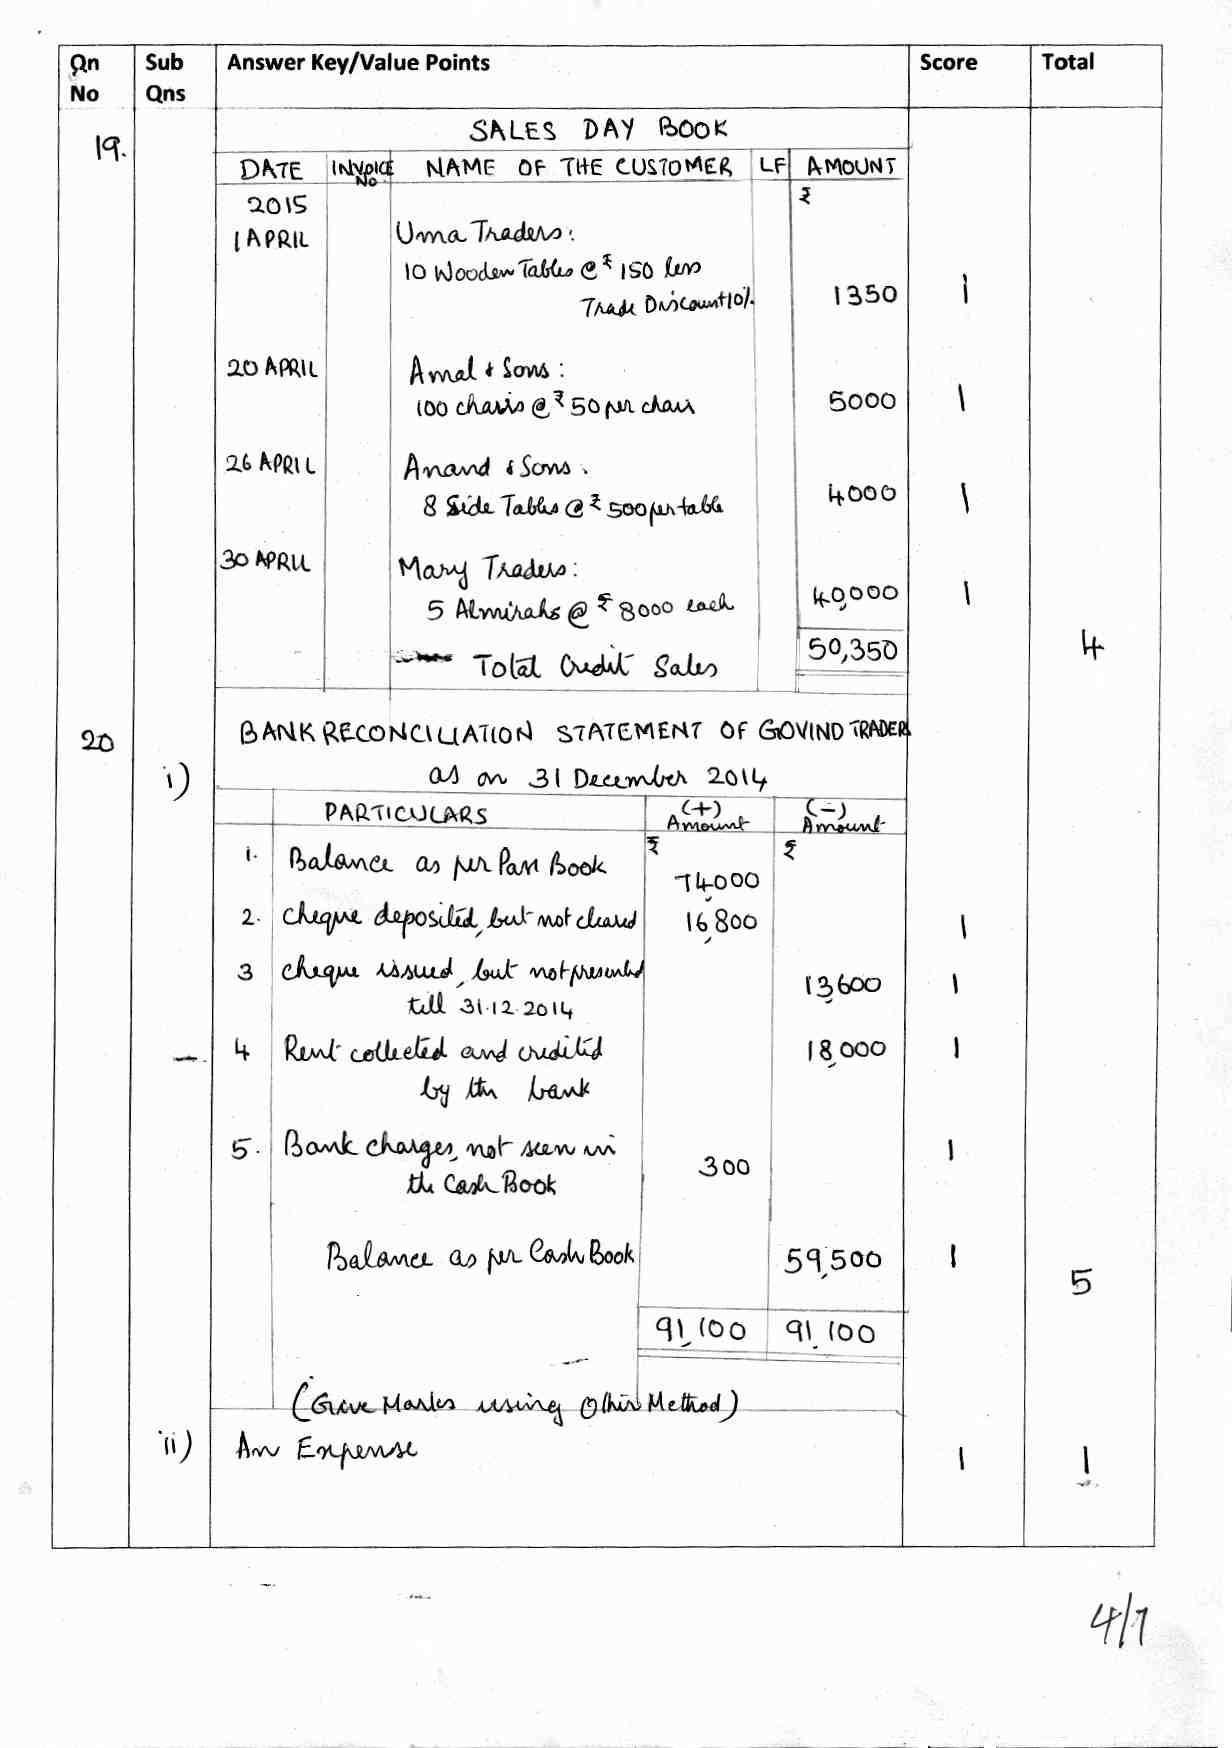 Qn No Sub Qns Answer Key/Value Points Score Total
19. SALES DAY BOOK
DATE INVOICE No NAME OF THE CUSTOMER LF AMOUNT
2015 ₹
1 APRIL Uma Traders:
10 Wooden Tables @ ₹ 150 less
Trade Discount 10% 1350 1
20 APRIL Amal & Sons:
100 chairs @ ₹ 50 per chair 5000 1
26 APRIL Anand & Sons.
8 Side Tables @ ₹ 500 per table 4000 1
30 APRIL Mary Traders:
5 Almirahs @ ₹ 8000 each 40,000 1
Total Credit Sales 50,350 4
20 BANK RECONCILIATION STATEMENT OF GOVIND TRADER
i) as on 31 December 2014
PARTICULARS (+) Amount (-) Amount
₹ ₹
1. Balance as per Pass Book 74,000
2. cheque deposited, but not cleared 16,800 1
3 cheque issued, but not presented
till 31.12.2014 13,600 1
4 Rent collected and credited 18,000 1
by the bank
5. Bank charges, not seen in
the Cash Book 300 1
Balance as per Cash Book 59,500 1
5
91,100 91,100
(Give Marks using Other Method)
ii) An Expense 1 1
4/7